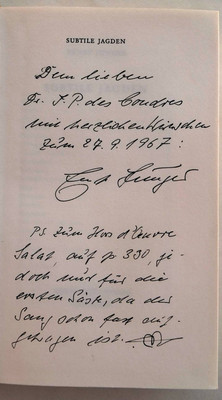 SUBTILE JAGDEN
Dem lieben
Dr. J. P. des Coudres
mit herzlichen Wünschen
zum 27.9.1967:
Ernst Jünger
PS zum Hors d'Oeuvre
Salat, auf p 330, je-
doch nur für die
ersten Gäste, da der
Gang schon fast auf-
getragen ist.